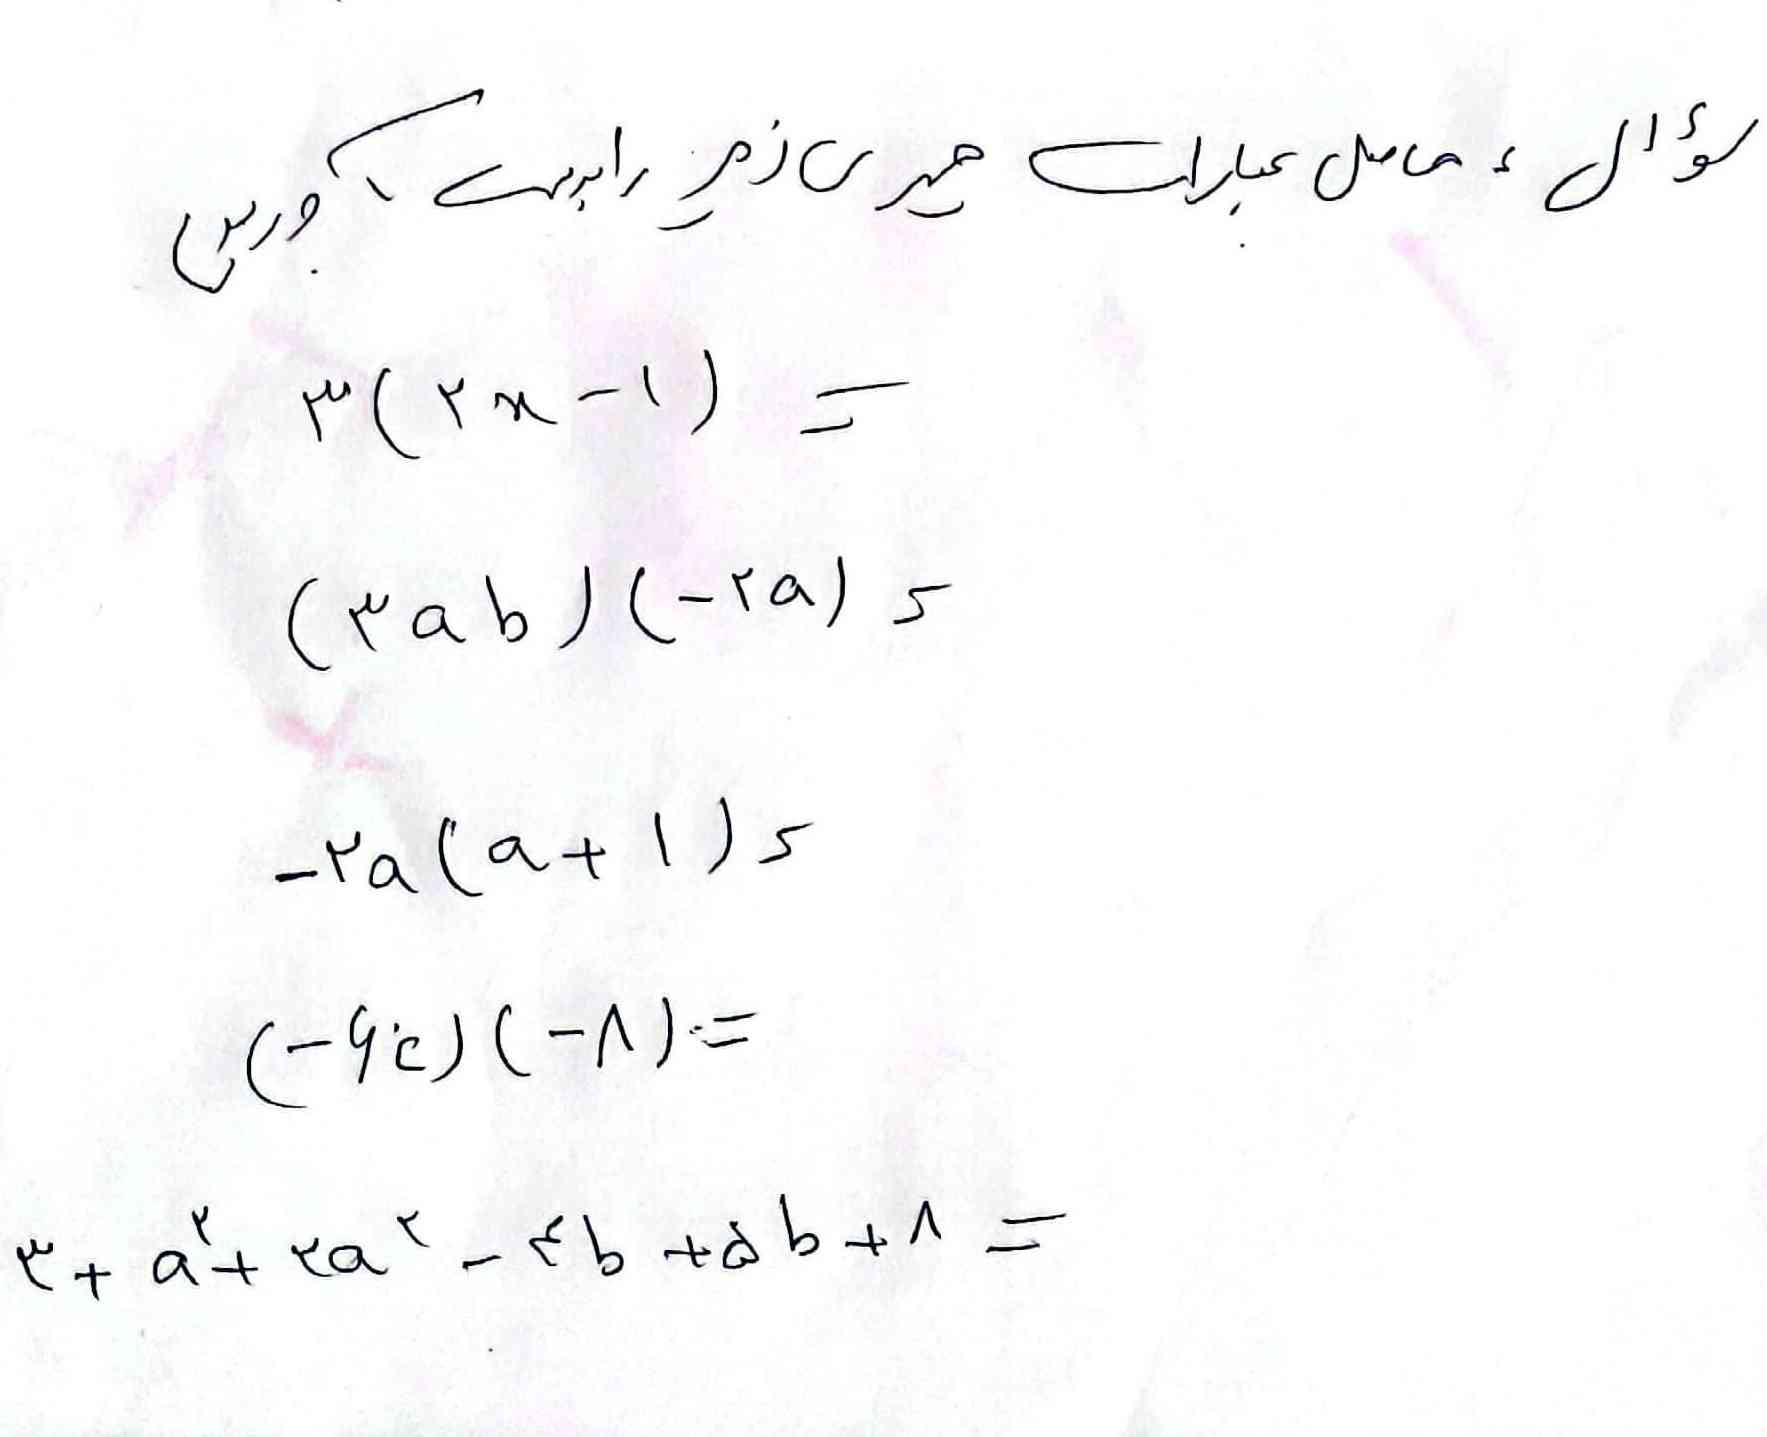 سؤال : حاصل عبارات جبری زیر را بدست آورید
۳(۲x-۱) =
(۳ab)(-۲a) =
-۲a(a+۱) =
(-۶c)(-۸) =
۳+a^۲+۲a^۲-۴b+۵b+۸=